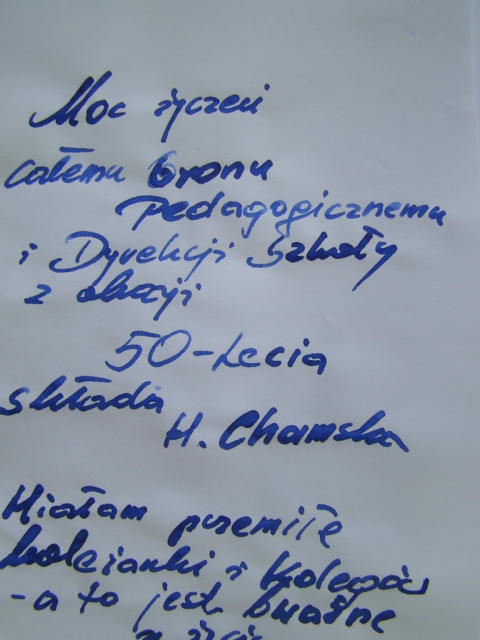 Moc życzeń
całemu Gronu
Pedagogicznemu
i Dyrekcji Szkoły
z okazji
50-Lecia
składa
H. Chamska
Miałam przemiłe
koleżanki i Kolegów
- a to jest ważne
w życiu